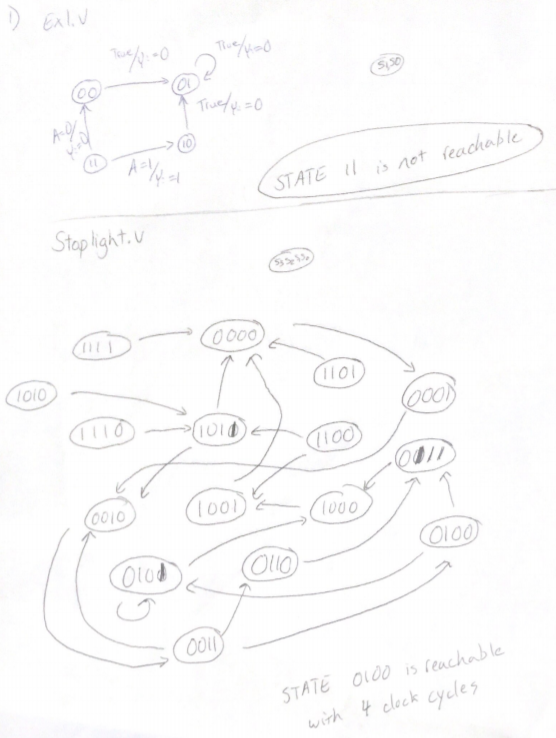 1) Ex1.v
True/Y:=0
True/Y:=0
S1S0
00
01
True/Y:=0
A=0/
Y:=0
11
10
A=1/
Y:=1
STATE 11 is not reachable
Stoplight.v
S3S2S1S0
1111
0000
1101
1010
0001
1110
1011
1100
0111
0010
1001
1000
0100
0101
0110
0011
STATE 0100 is reachable
with 4 clock cycles